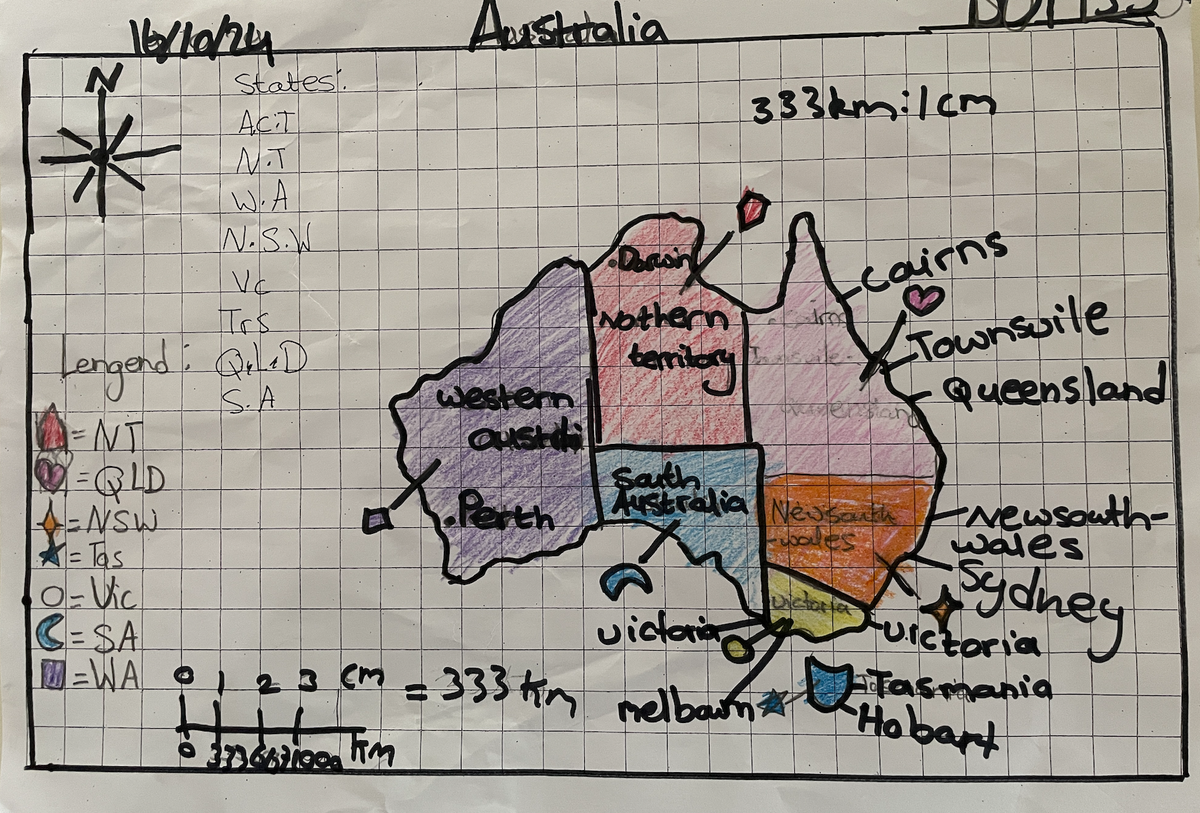 16/10/24
Australia
N
States:
A.C.T
N.T
W.A
N.S.W
Vc
Trs
Q.L.D
S.A
333km:1cm
Lengend:
= NT
= QLD
= NSW
= Tas
= Vic
= SA
= WA
Darwin
Nothern
territory
Cairns
Townsvile
Queensland
Queensland
western
Perth
South
Australia
Newsouth
-wales
Newsouth-
wales
Sydney
victoria
victoria
victoria
melbourn
Tasmania
Hobart
0 1 2 3 cm
= 333 km
0 333 667 1000 km